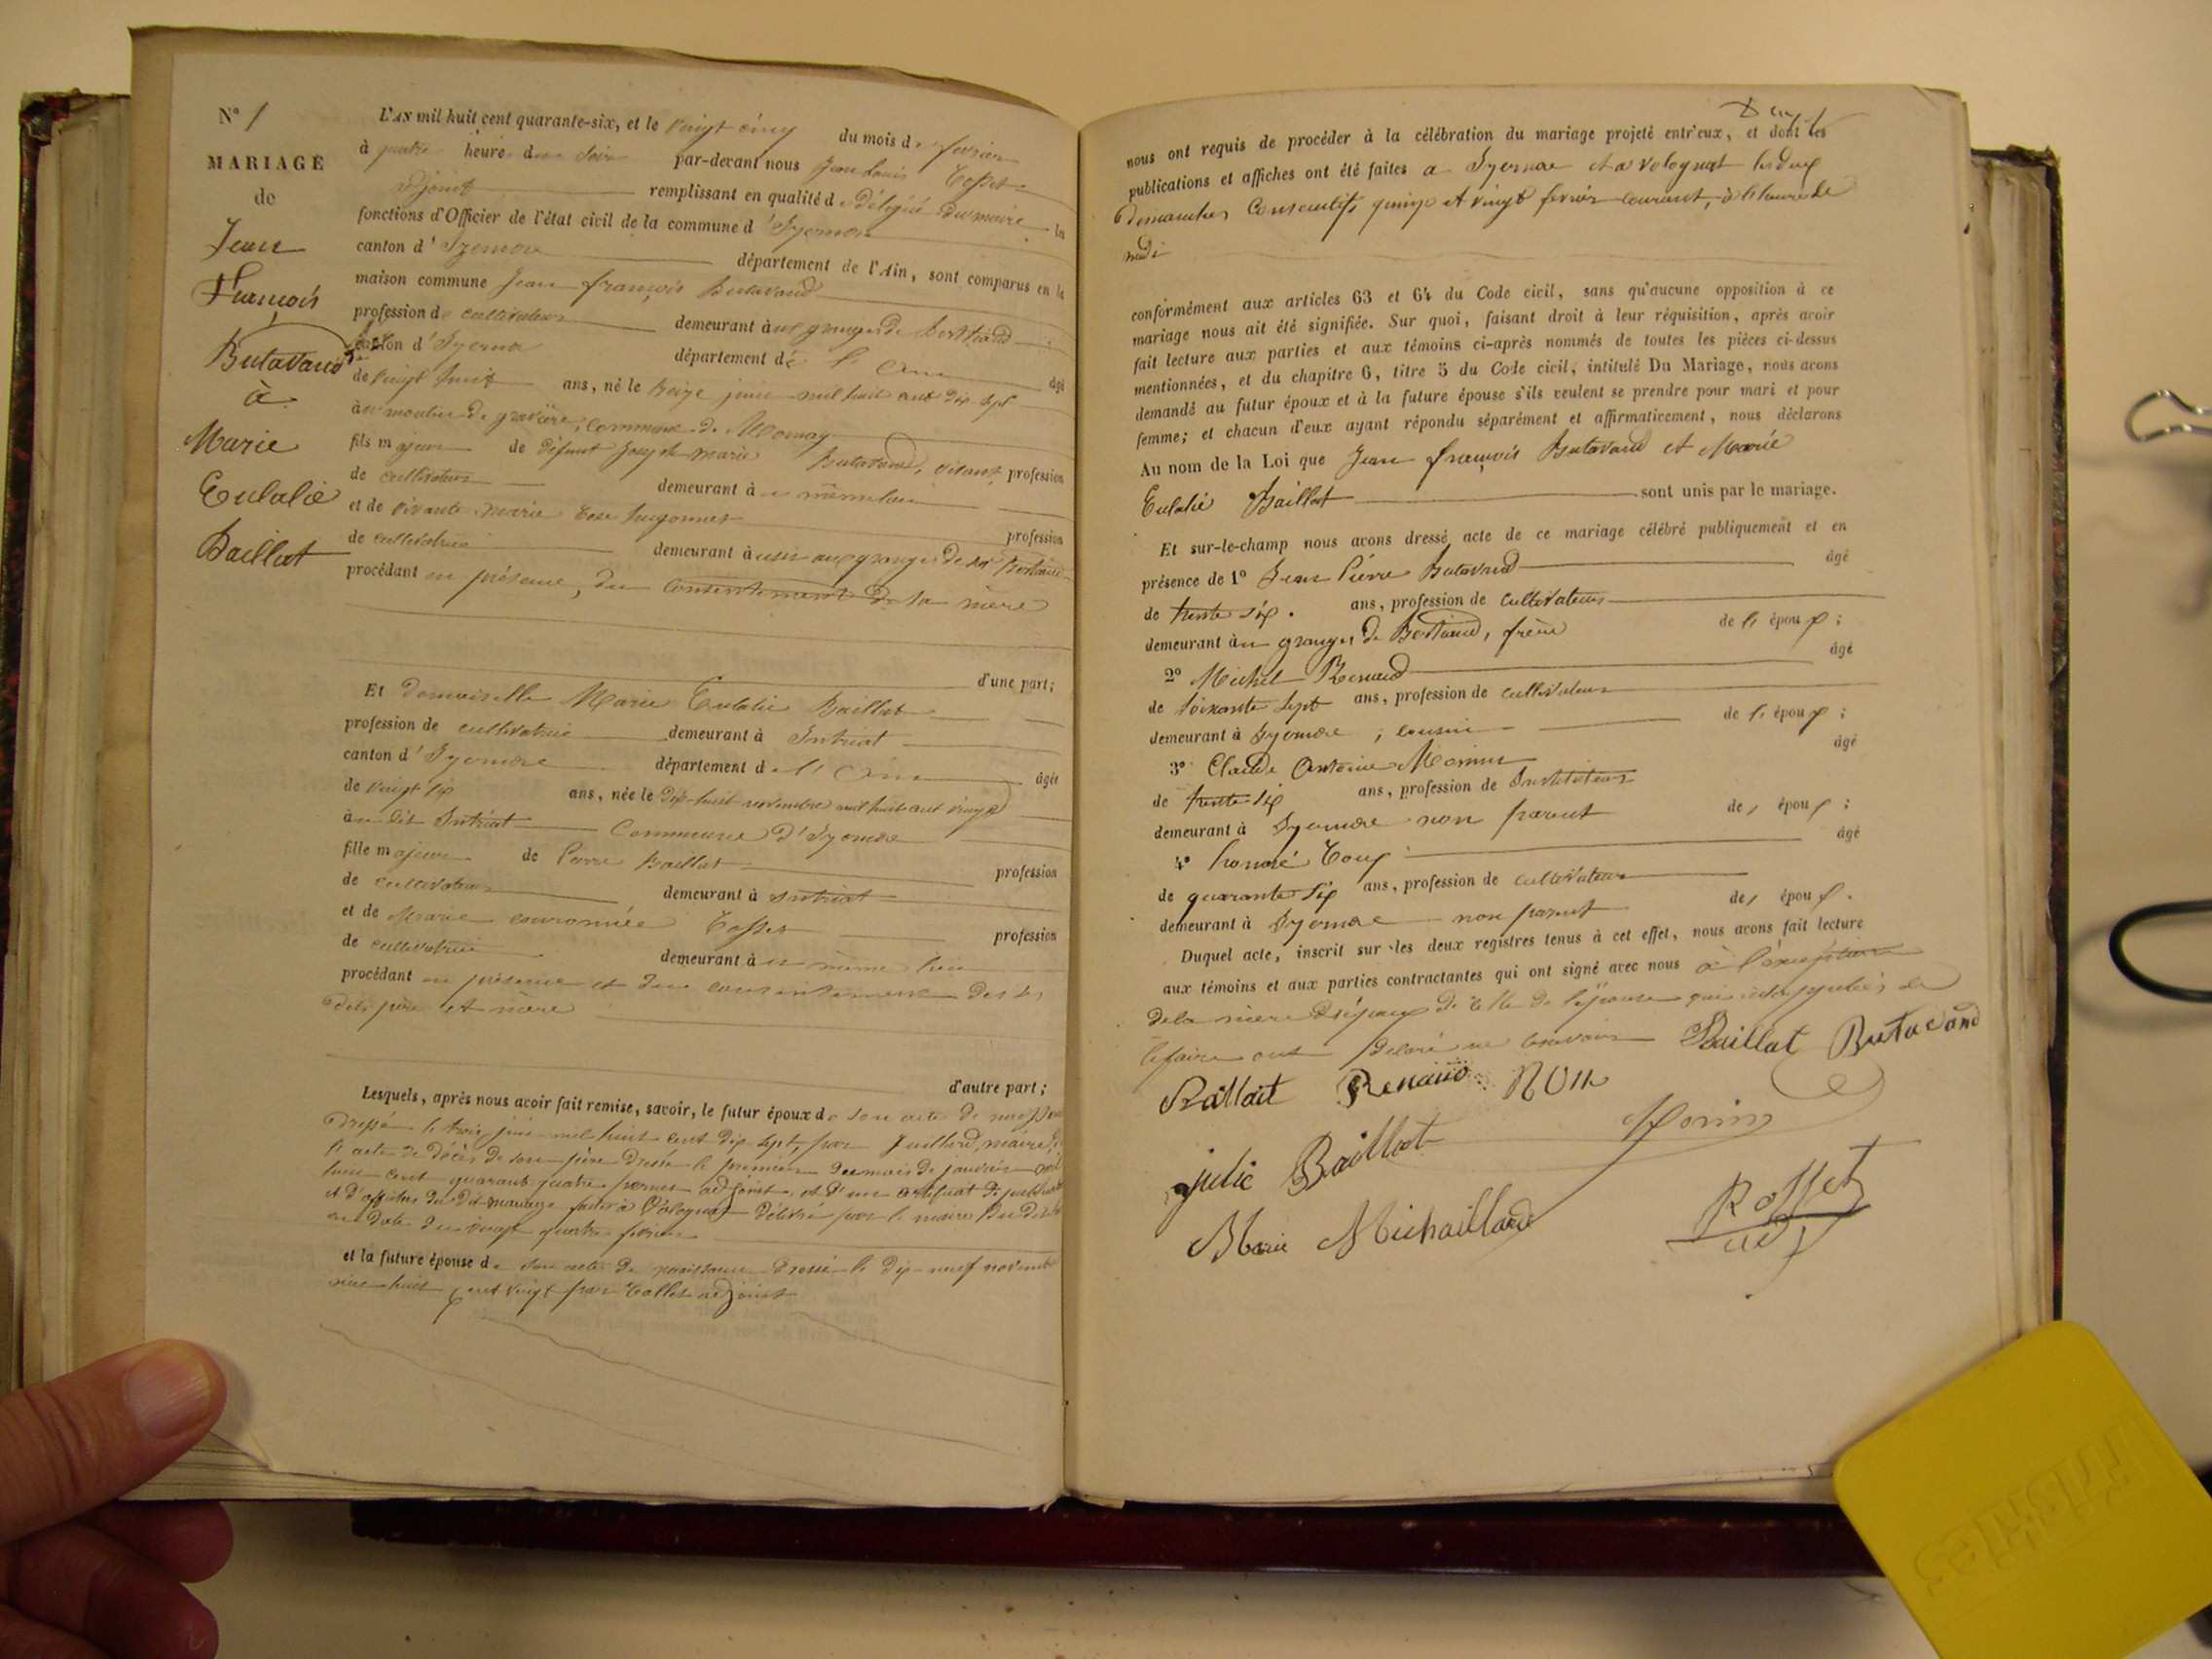 N° 1
MARIAGE
de
Jean
François
Butavand
à
Marie
Eulalie
Baillat
L'AN mil huit cent quarante-six, et le vingt cinq du mois de fevrier
à quatre heures du soir par-devant nous Jean Louis Rosset
adjoint remplissant en qualité de délégué du maire les
fonctions d'Officier de l'état civil de la commune d'Izernore
canton d'Izernore département de l'Ain, sont comparus en la
maison commune Jean françois Butavand
profession de cultivateur demeurant aux granges de Bertiand
canton d'Izernore département de l'Ain âgé
de vingt huit ans, né le treize juin mil huit cent dix sept
au moulin de gravière, commune de Mornay
fils majeur de défunt Joseph marie Butavand, vivant profession
de cultivateur demeurant à même lieu
et de vivante marie Rose hugonnet profession
de cultivatrice demeurant à aux granges de Bertiand
procédant en présence, du consentement de la mère
d'une part;
Et demoiselle Marie Eulalie Baillat
profession de cultivatrice demeurant à Intriat
canton d'Izernore département de l'Ain âgée
de vingt six ans, née le dix-huit novembre mil huit cent vingt
au dit Intriat Commune d'Izernore
fille majeure de Pierre Baillat profession
de cultivateur demeurant à intriat
et de Marie couronnée Rosset profession
de cultivatrice demeurant à même lieu
procédant en présence et du consentement de ses
dits père et mère
d'autre part;
Lesquels, après nous avoir fait remise, savoir, le futur époux de son acte de naissance
Dressé le treize juin mil huit cent dix sept, par Juillard, maire,
l'acte de décès de son père Dressé le premier du mois de janvier mil
huit cent quarante quatre adjoint, et d'un certificat de publication
et d'affiches du dit mariage faites à Volognat Délivré par le maire du dit
en date du vingt quatre fevrier
et la future épouse de son acte de naissance Dressé le dix-neuf novembre
mil huit cent vingt par adjoint
nous ont requis de procéder à la célébration du mariage projeté entr'eux, et dont les
publications et affiches ont été faites a Izernore et a volognat les deux
Dimanches Consecutifs quinze et vingt fevrier courant, à l'heure de
midi
conformément aux articles 63 et 64 du Code civil, sans qu'aucune opposition à ce
mariage nous ait été signifiée. Sur quoi, faisant droit à leur réquisition, après avoir
fait lecture aux parties et aux témoins ci-après nommés de toutes les pièces ci-dessus
mentionnées, et du chapitre 6, titre 5 du Code civil, intitulé Du Mariage, nous avons
demandé au futur époux et à la future épouse s'ils veulent se prendre pour mari et pour
femme; et chacun d'eux ayant répondu séparément et affirmativement, nous déclarons
Au nom de la Loi que Jean françois Butavand et Marie
Eulalie Baillat sont unis par le mariage.
Et sur-le-champ nous avons dressé acte de ce mariage célébré publiquement et en
présence de 1° Jean Pierre Butavand âgé
de trente six. ans, profession de Cultivateur
demeurant aux granges de Bertiand, frère de l'époux;
2° Michel Renaud âgé
de soixante sept ans, profession de cultivateur
demeurant à Izernore, cousin de l'époux;
3° Claude Antoine Morin âgé
de trente six ans, profession de Instituteur
demeurant à Izernore non parent des époux;
4° honoré Roux âgé
de quarante six ans, profession de cultivateur
demeurant à Izernore non parent des époux.
Duquel acte, inscrit sur les deux registres tenus à cet effet, nous avons fait lecture
aux témoins et aux parties contractantes qui ont signé avec nous à l'exception
de la mère de l'époux de celle de l'épouse qui de
le faire ont Déclaré ne savoir Baillat Butavand
Baillait Renaud ROUX
julie Baillat Morin
Marie Michaillard Rosset
adj